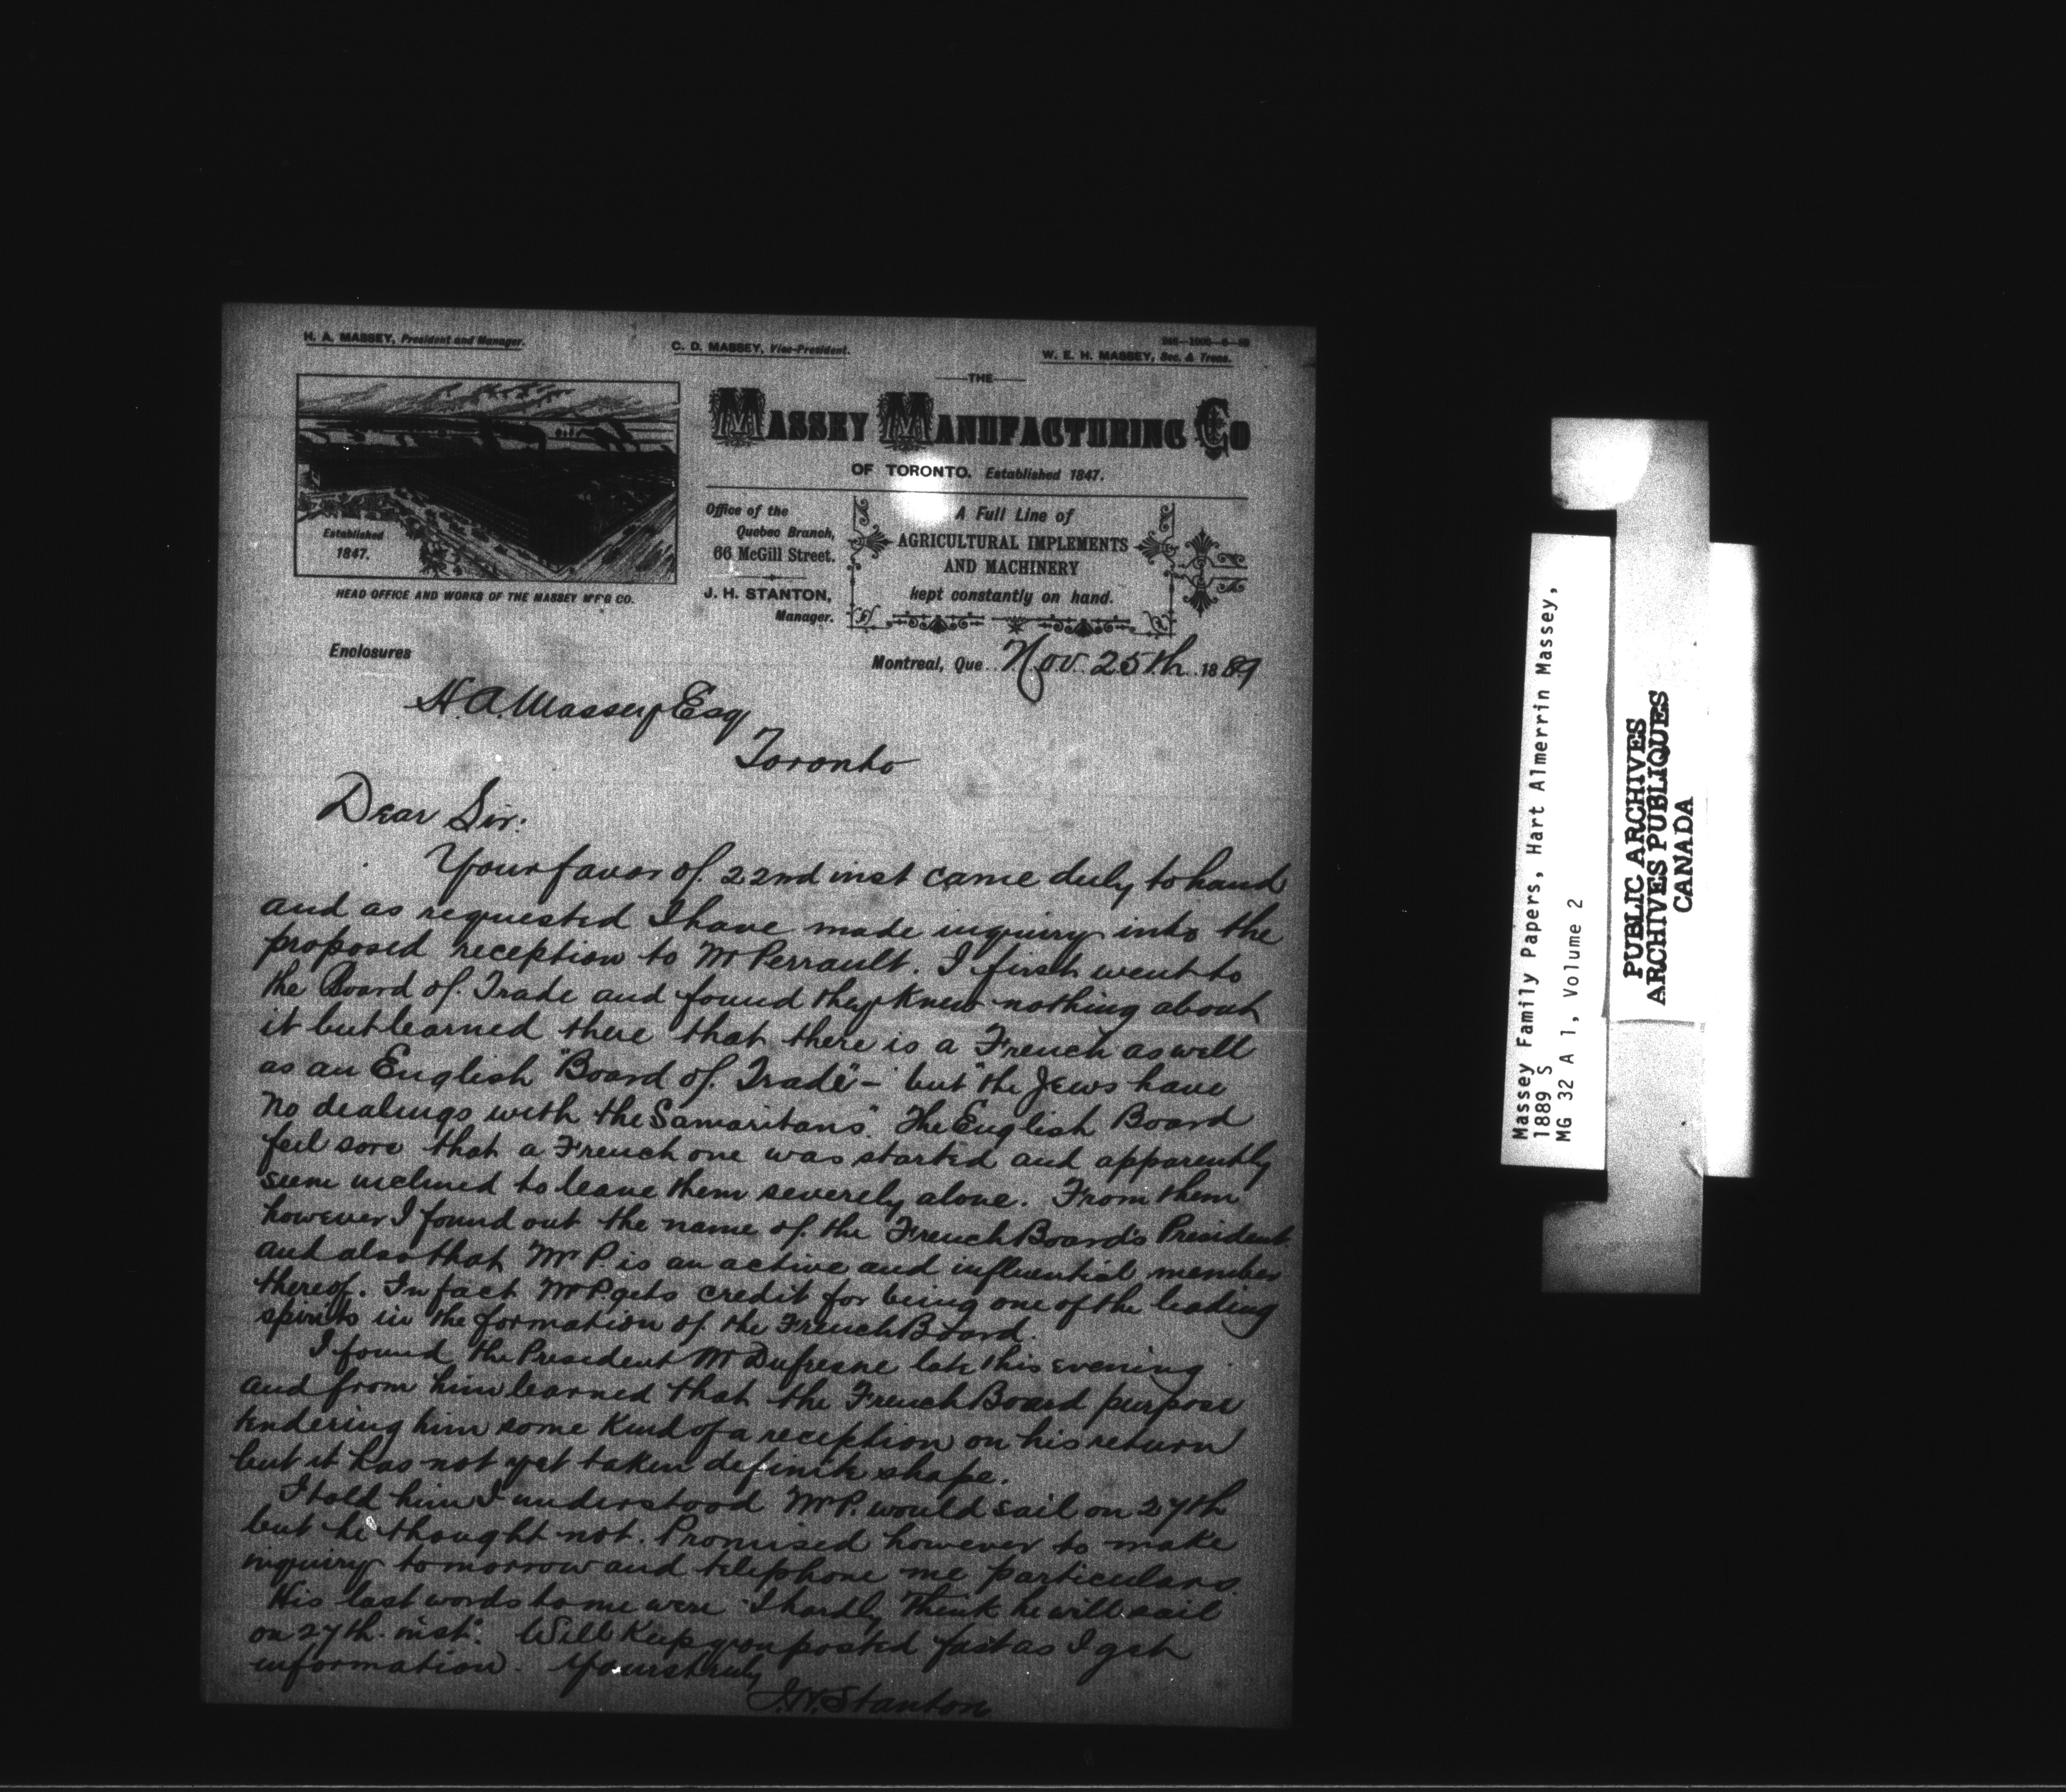 H. A. MASSEY, President and Manager.
C. D. MASSEY, Vice-President.
W. E. H. MASSEY, Sec. & Treas.
THE
MASSEY MANUFACTURING CO
OF TORONTO. Established 1847.
Established
1847.
HEAD OFFICE AND WORKS OF THE MASSEY M'F'G CO.
Office of the
Quebec Branch,
66 McGill Street.
J. H. STANTON,
Manager.
A Full Line of
AGRICULTURAL IMPLEMENTS
AND MACHINERY
kept constantly on hand.
Enclosures
Montreal, Que. Nov. 25th 1889
H. A. Massey Esq
Toronto
Dear Sir:
Your favor of 22nd inst came duly to hand
and as requested I have made inquiry into the
proposed reception to Mr Perrault. I first went to
the Board of Trade and found they knew nothing about
it but learned there that there is a French as well
as an English "Board of Trade" - but "the Jews have
no dealings with the Samaritans". The English Board
feel sore that a French one was started and apparently
seem inclined to leave them severely alone. From them
however I found out the name of the French Board's President
and also that Mr P. is an active and influential member
thereof. In fact Mr P gets credit for being one of the leading
spirits in the formation of the French Board.
I found the President Mr Dufresne late this evening
and from him learned that the French Board purpose
tendering him some kind of a reception on his return
but it has not yet taken definite shape.
I told him I understood Mr P. would sail on 27th
but he thought not. Promised however to make
inquiry tomorrow and telephone me particulars.
His last words to me were "I hardly think he will sail
on 27th inst". Will keep you posted fast as I get
information. Yours truly
J. H. Stanton
Massey Family Papers, Hart Almerrin Massey,
1889 S
MG 32 A 1, Volume 2
PUBLIC ARCHIVES
ARCHIVES PUBLIQUES
CANADA